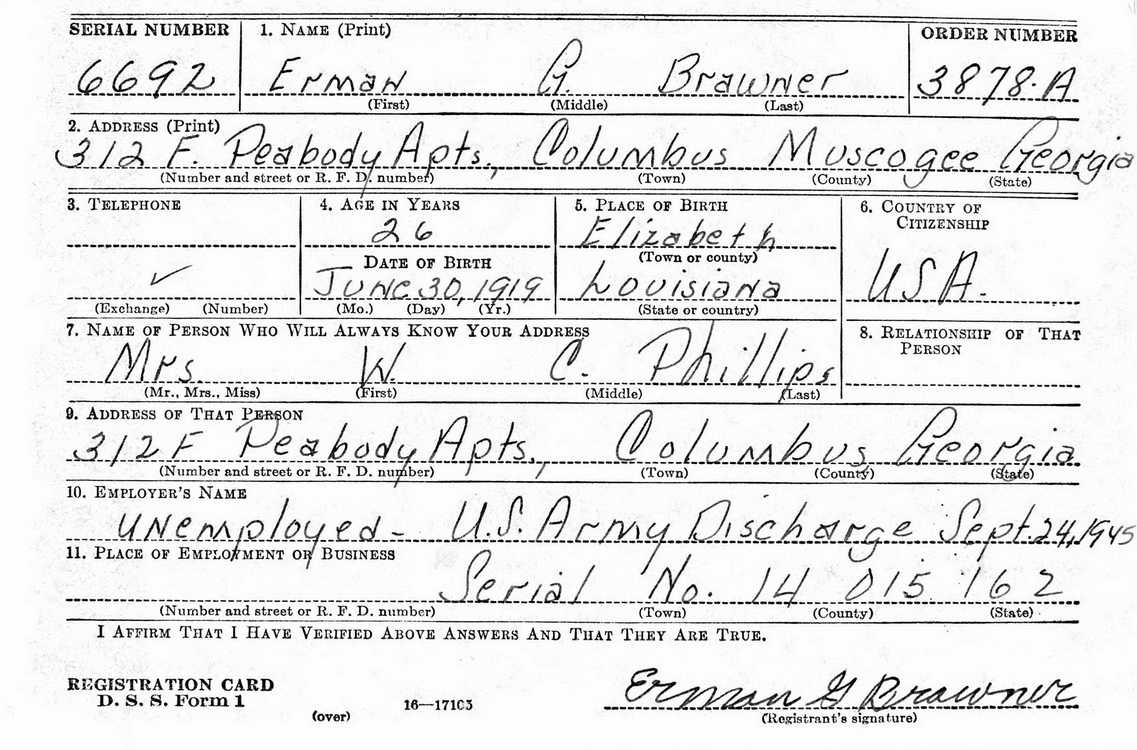 SERIAL NUMBER 1. NAME (Print) ORDER NUMBER
6692 Erman G. Brawner 3878-A
(First) (Middle) (Last)
2. ADDRESS (Print)
312 F. Peabody Apts., Columbus Muscogee Georgia
(Number and street or R. F. D. number) (Town) (County) (State)
3. TELEPHONE 4. AGE IN YEARS 5. PLACE OF BIRTH 6. COUNTRY OF
CITIZENSHIP
26 Elizabeth
(Town or county)
DATE OF BIRTH
✓ June 30, 1919 Louisiana USA.
(Exchange) (Number) (Mo.) (Day) (Yr.) (State or country)
7. NAME OF PERSON WHO WILL ALWAYS KNOW YOUR ADDRESS 8. RELATIONSHIP OF THAT
PERSON
Mrs W. C. Phillips
(Mr., Mrs., Miss) (First) (Middle) (Last)
9. ADDRESS OF THAT PERSON
312 F Peabody Apts., Columbus Georgia
(Number and street or R. F. D. number) (Town) (County) (State)
10. EMPLOYER'S NAME
unemployed - U.S. Army Discharge Sept. 24, 1945
11. PLACE OF EMPLOYMENT OR BUSINESS
Serial No. 14 015 162
(Number and street or R. F. D. number) (Town) (County) (State)
I AFFIRM THAT I HAVE VERIFIED ABOVE ANSWERS AND THAT THEY ARE TRUE.
REGISTRATION CARD
D. S. S. Form 1 16—17105
(over)
Erman G Brawner
(Registrant's signature)